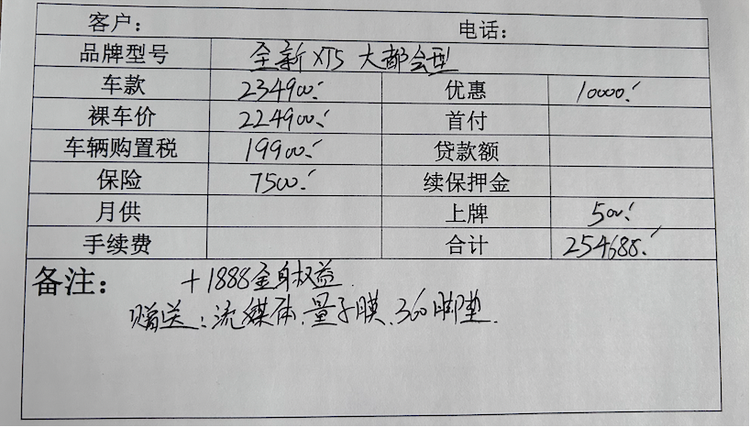 客户： 电话：
品牌型号 全新XT5 大都会型
车款 234900.- 优惠 10000.-
裸车价 224900.- 首付
车辆购置税 19900.- 贷款额
保险 7500.- 续保押金
月供 上牌 500.-
手续费 合计 254688.-
备注： +1888金身权益.
赠送：流媒体.量子膜.360脚垫.